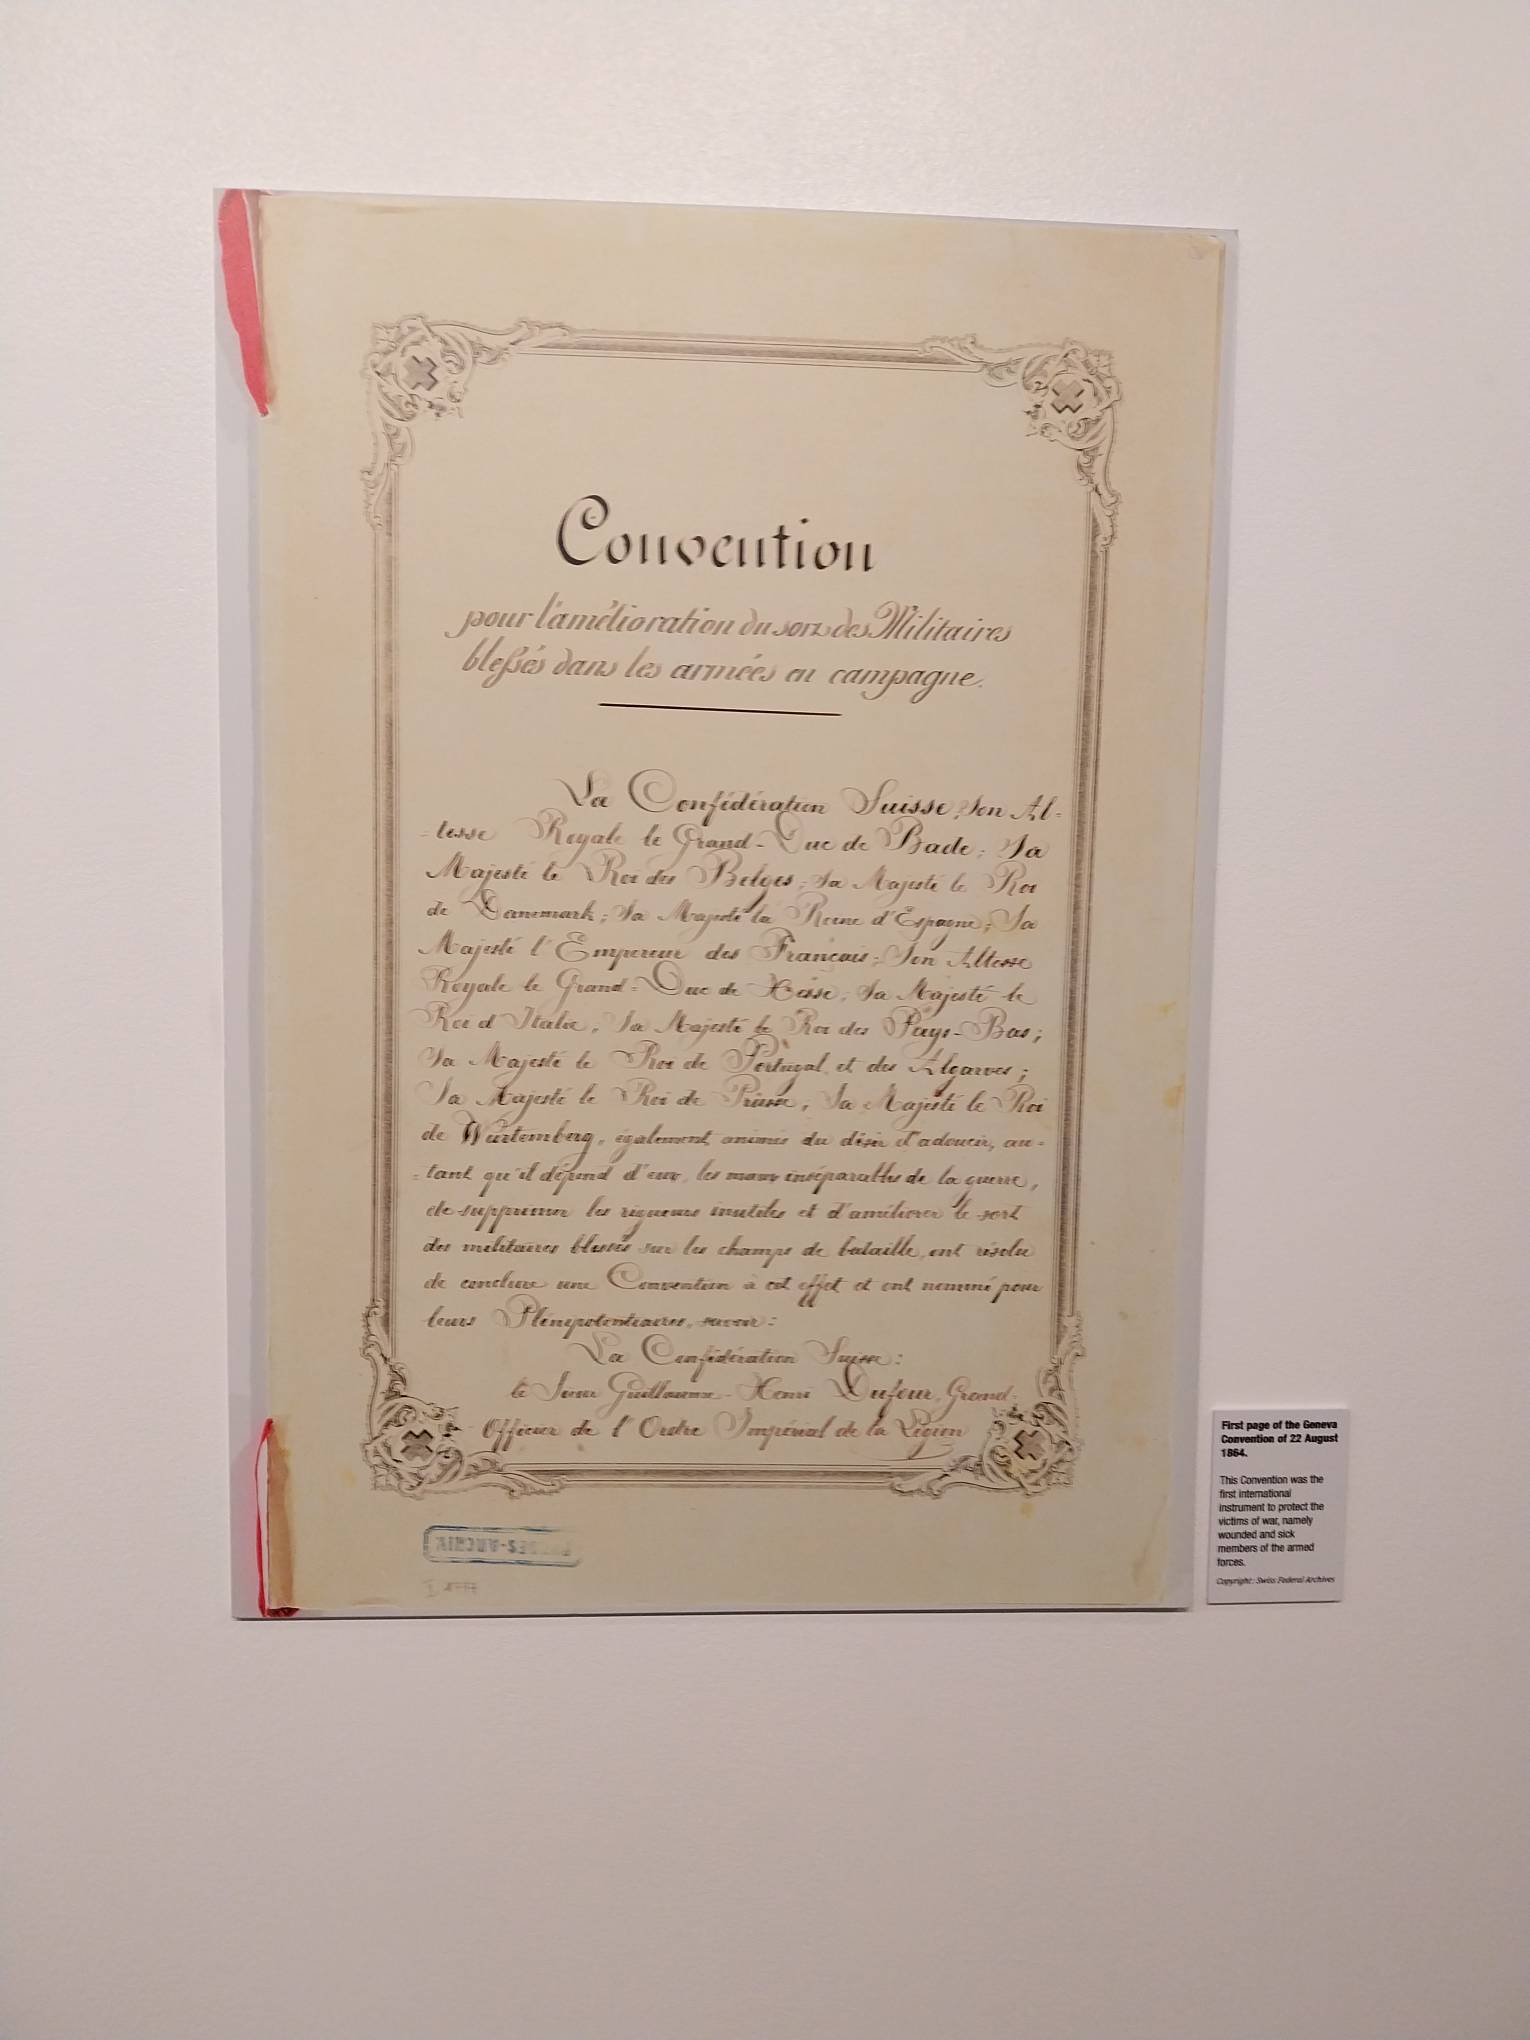 Convention
pour l'amélioration du sort des Militaires
blessés dans les armées en campagne.
La Confédération Suisse; Son Al-
-tesse Royale le Grand-Duc de Bade; Sa
Majesté le Roi des Belges; Sa Majesté le Roi
de Danemark; Sa Majesté la Reine d'Espagne; Sa
Majesté l'Empereur des Français; Son Altesse
Royale le Grand-Duc de Hesse; Sa Majesté le
Roi d'Italie; Sa Majesté le Roi des Pays-Bas;
Sa Majesté le Roi de Portugal et des Algarves;
Sa Majesté le Roi de Prusse; Sa Majesté le Roi
de Wurtemberg, également animés du désir d'adoucir, au-
-tant qu'il dépend d'eux, les maux inséparables de la guerre,
de supprimer les rigueurs inutiles et d'améliorer le sort
des militaires blessés sur les champs de bataille, ont résolu
de conclure une Convention à cet effet et ont nommé pour
leurs Plénipotentiaires, savoir:
La Confédération Suisse:
le Sieur Guillaume-Henri Dufour, Grand-
Officier de l'Ordre Impérial de la Légion
First page of the Geneva
Convention of 22 August
1864.
This Convention was the
first international
instrument to protect the
victims of war, namely
wounded and sick
members of the armed
forces.
Copyright: Swiss Federal Archives